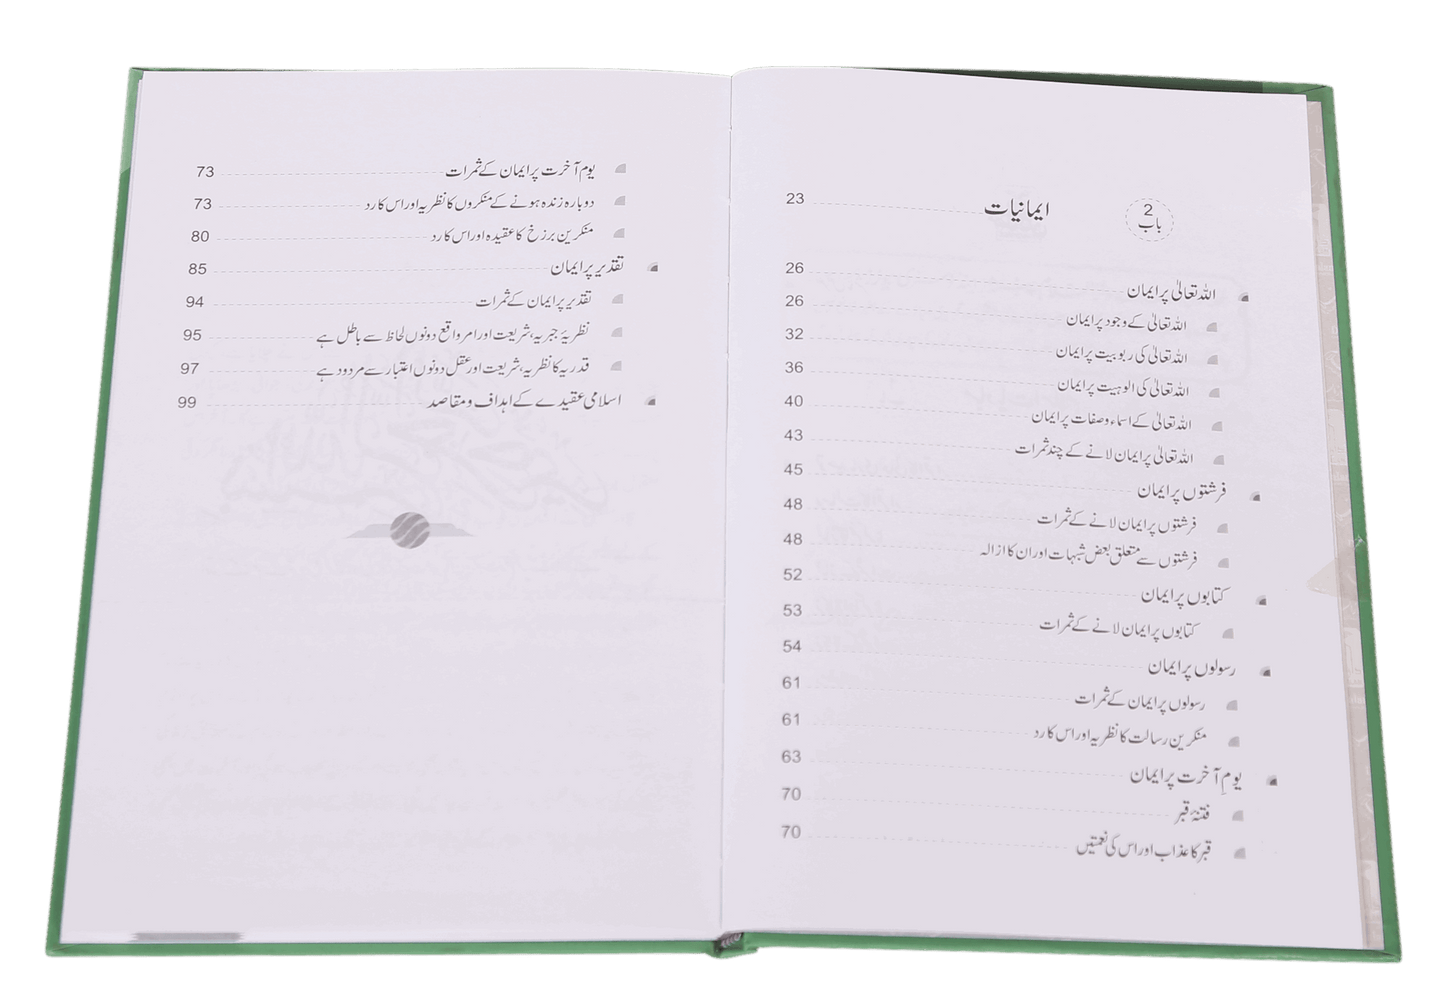 باب 2 ایمانیات 23
اللہ تعالیٰ پر ایمان 26
اللہ تعالیٰ کے وجود پر ایمان 26
اللہ تعالیٰ کی ربوبیت پر ایمان 32
اللہ تعالیٰ کی الوہیت پر ایمان 36
اللہ تعالیٰ کے اسماء وصفات پر ایمان 40
اللہ تعالیٰ پر ایمان لانے کے چند ثمرات 43
فرشتوں پر ایمان 45
فرشتوں پر ایمان لانے کے ثمرات 48
فرشتوں سے متعلق بعض شبہات اور ان کا ازالہ 48
کتابوں پر ایمان 52
کتابوں پر ایمان لانے کے ثمرات 53
رسولوں پر ایمان 54
رسولوں پر ایمان کے ثمرات 61
منکرین رسالت کا نظریہ اور اس کا رد 61
یومِ آخرت پر ایمان 63
فتنۂ قبر 70
قبر کا عذاب اور اس کی نعمتیں 70
یوم آخرت پر ایمان کے ثمرات 73
دوبارہ زندہ ہونے کے منکروں کا نظریہ اور اس کا رد 73
منکرین برزخ کا عقیدہ اور اس کا رد 80
تقدیر پر ایمان 85
تقدیر پر ایمان کے ثمرات 94
نظریۂ جبریہ، شریعت اور امر واقع دونوں لحاظ سے باطل ہے 95
قدریہ کا نظریہ، شریعت اور عقل دونوں اعتبار سے مردود ہے 97
اسلامی عقیدے کے اہداف و مقاصد 99